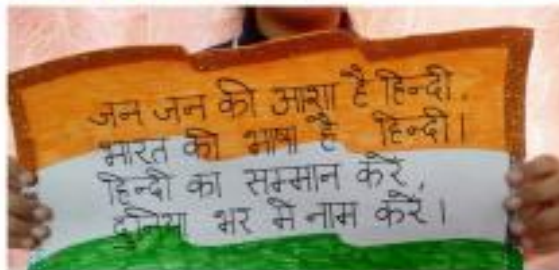 जन जन की आशा है हिन्दी,
भारत की भाषा है हिन्दी।
हिन्दी का सम्मान करें,
दुनिया भर मे नाम करें।